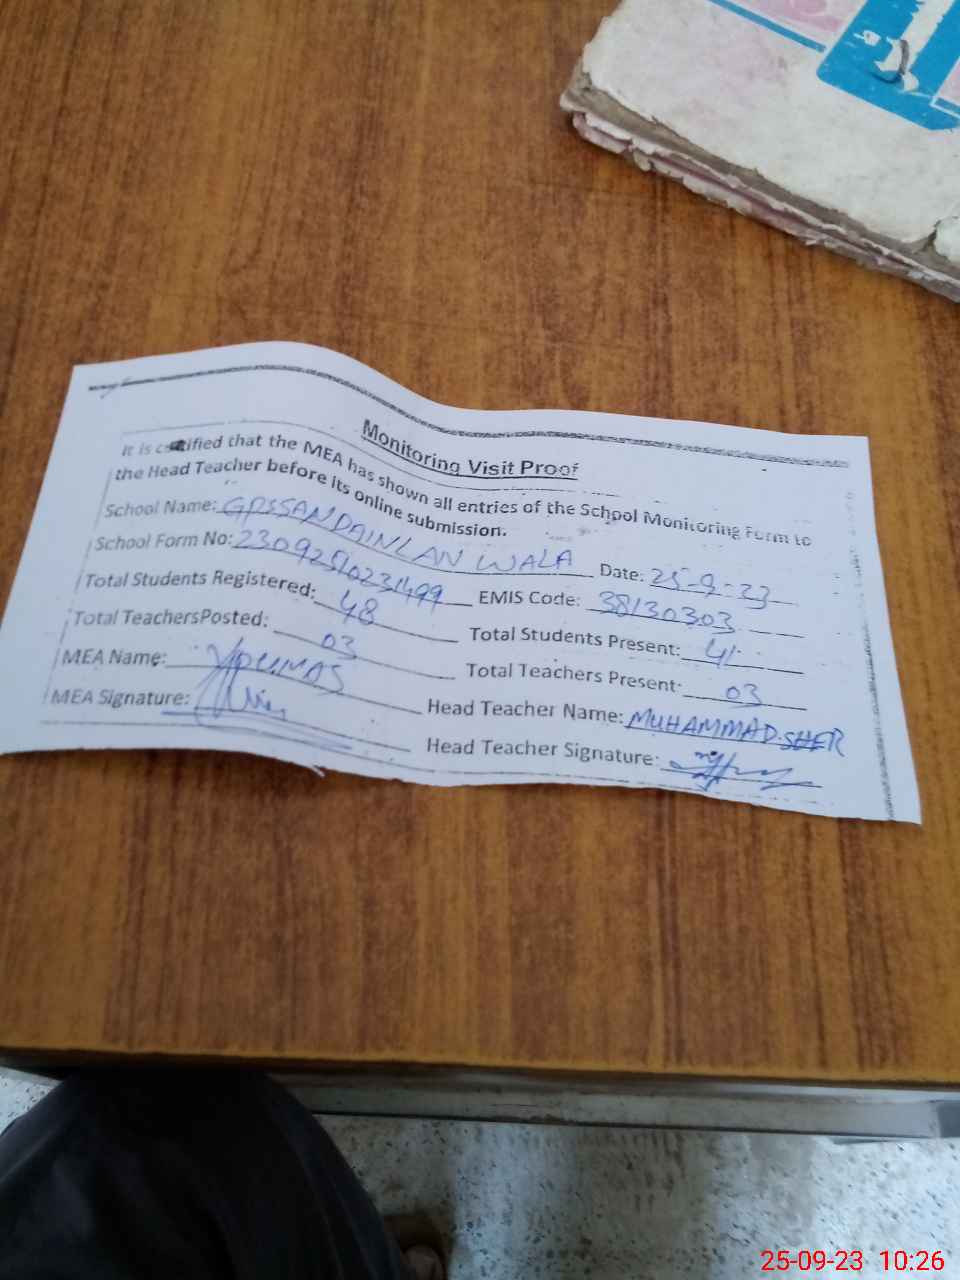 Monitoring Visit Proof
It is certified that the MEA has shown all entries of the School Monitoring Form to
the Head Teacher before its online submission.
School Name: GPS SANDAINLAN WALA Date: 25-9-23
School Form No: 23092510231499 EMIS Code: 38130303
Total Students Registered: 48 Total Students Present: 41
Total TeachersPosted: 03 Total Teachers Present: 03
MEA Name: Head Teacher Name: MUHAMMAD SHER
MEA Signature: Head Teacher Signature:
25-09-23 10:26